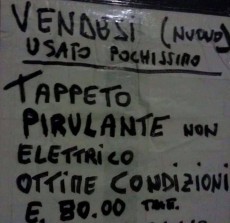 VENDESI (NUOVO)
USATO POCHISSIMO
TAPPETO
PIRULANTE NON
ELETTRICO
OTTIME CONDIZIONI
E. 80.00 TME.